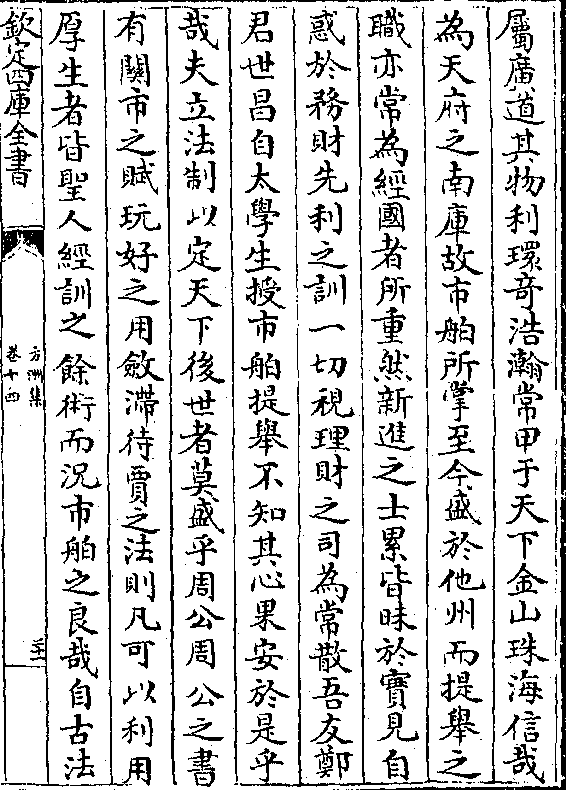 屬廣道其物利瓌竒浩瀚常甲于天下金山珠海信哉
為天府之南庫故市舶所掌至今盛於他州而提舉之
職亦常為經國者所重然新進之士累皆昧於寶見自
惑於務財先利之訓一切視理財之司為常散吾友鄭
君世昌自太學生授市舶提舉不知其心果安於是乎
哉夫立法制以定天下後世者莫盛乎周公周公之書
有關市之賦玩好之用斂滯待賈之法則凡可以利用
厚生者皆聖人經訓之餘術而況市舶之良哉自古法
欽定四庫全書
方洲集
卷十四